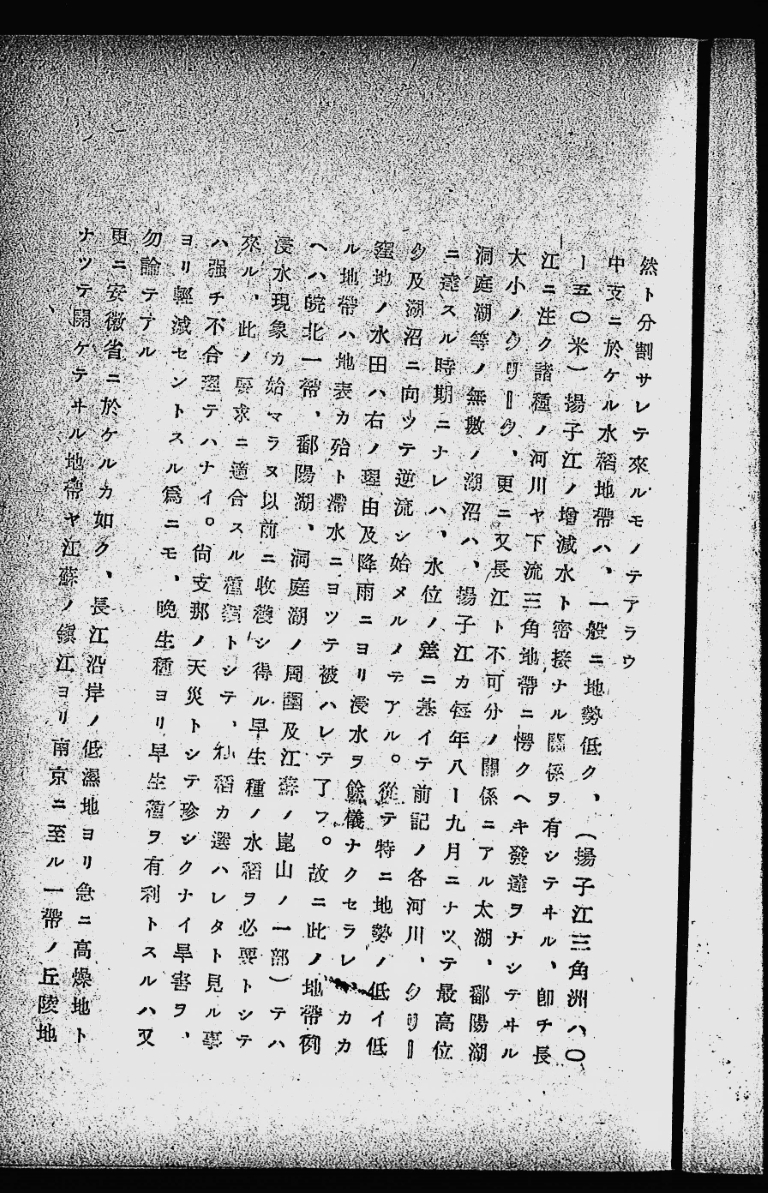 然ト分割サレテ來ルモノテアラウ
中支ニ於ケル水稻地帶ハ、一般ニ地勢低ク、（揚子江三角洲ハ〇
ー五〇米）揚子江ノ增減水ト密接ナル關係ヲ有シテヰル、卽チ長
江ニ注ク諸種ノ河川ヤ下流三角地帶ニ愕クヘキ發達ヲナシテヰル
大小ノクリーク、更ニ又長江ト不可分ノ關係ニアル太湖、鄱陽湖
洞庭湖等ノ無數ノ湖沼ハ、揚子江カ每年八ー九月ニナツテ最高位
ニ達スル時期ニナレハ、水位ノ差ニ基イテ前記ノ各河川、クリー
ク及湖沼ニ向ツテ逆流シ始メルノテアル。從テ特ニ地勢ノ低イ低
窪地ノ水田ハ右ノ理由及降雨ニヨリ浸水ヲ餘儀ナクセラレ、カカ
ル地帶ハ地表カ殆ト滯水ニヨツテ被ハレテ了フ。故ニ此ノ地帶例
ヘハ皖北一帶、鄱陽湖、洞庭湖ノ周圍及江蘇ノ崑山ノ一部）テハ
浸水現象カ始マラヌ以前ニ收穫シ得ル早生種ノ水稻ヲ必要トシテ
來ル、此ノ要求ニ適合スル種類トシテ、秈稻カ選ハレタト見ル事
ハ强チ不合理テハナイ。尙支那ノ天災トシテ珍シクナイ旱害ヲ、
ヨリ輕減セントスル爲ニモ、晚生種ヨリ早生種ヲ有利トスルハ又
勿論テアル
更ニ安徽省ニ於ケルカ如ク、長江沿岸ノ低濕地ヨリ急ニ高燥地ト
ナツテ開ケテヰル地帶ヤ江蘇ノ鎭江ヨリ南京ニ至ル一帶ノ丘陵地